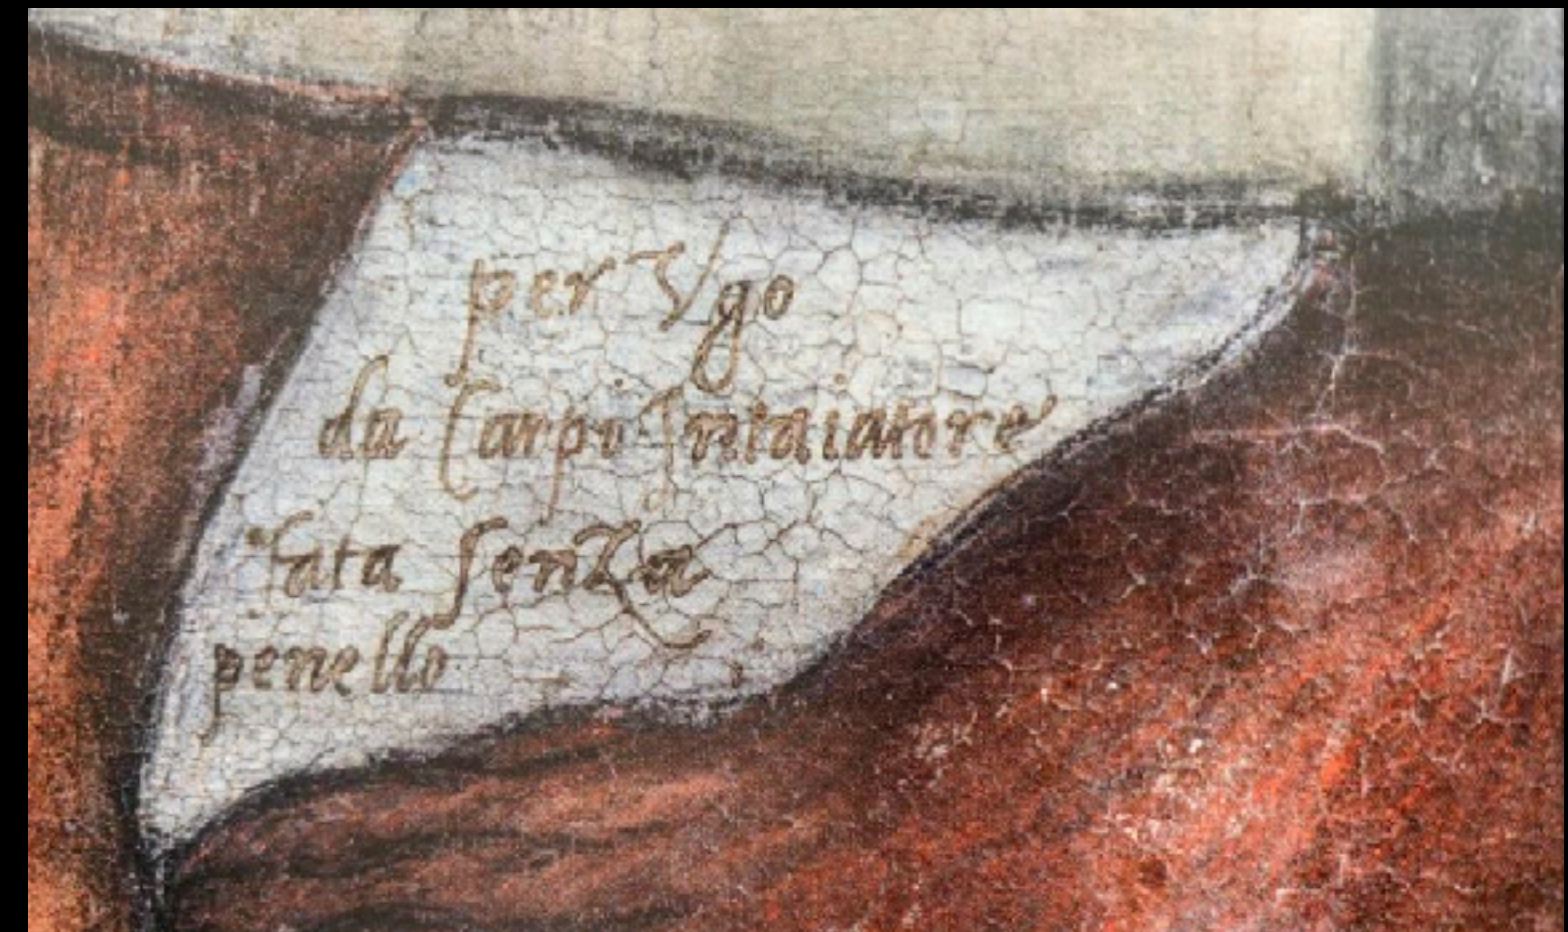 per Vgo
da Carpi Intaiatore
fata senza
penello